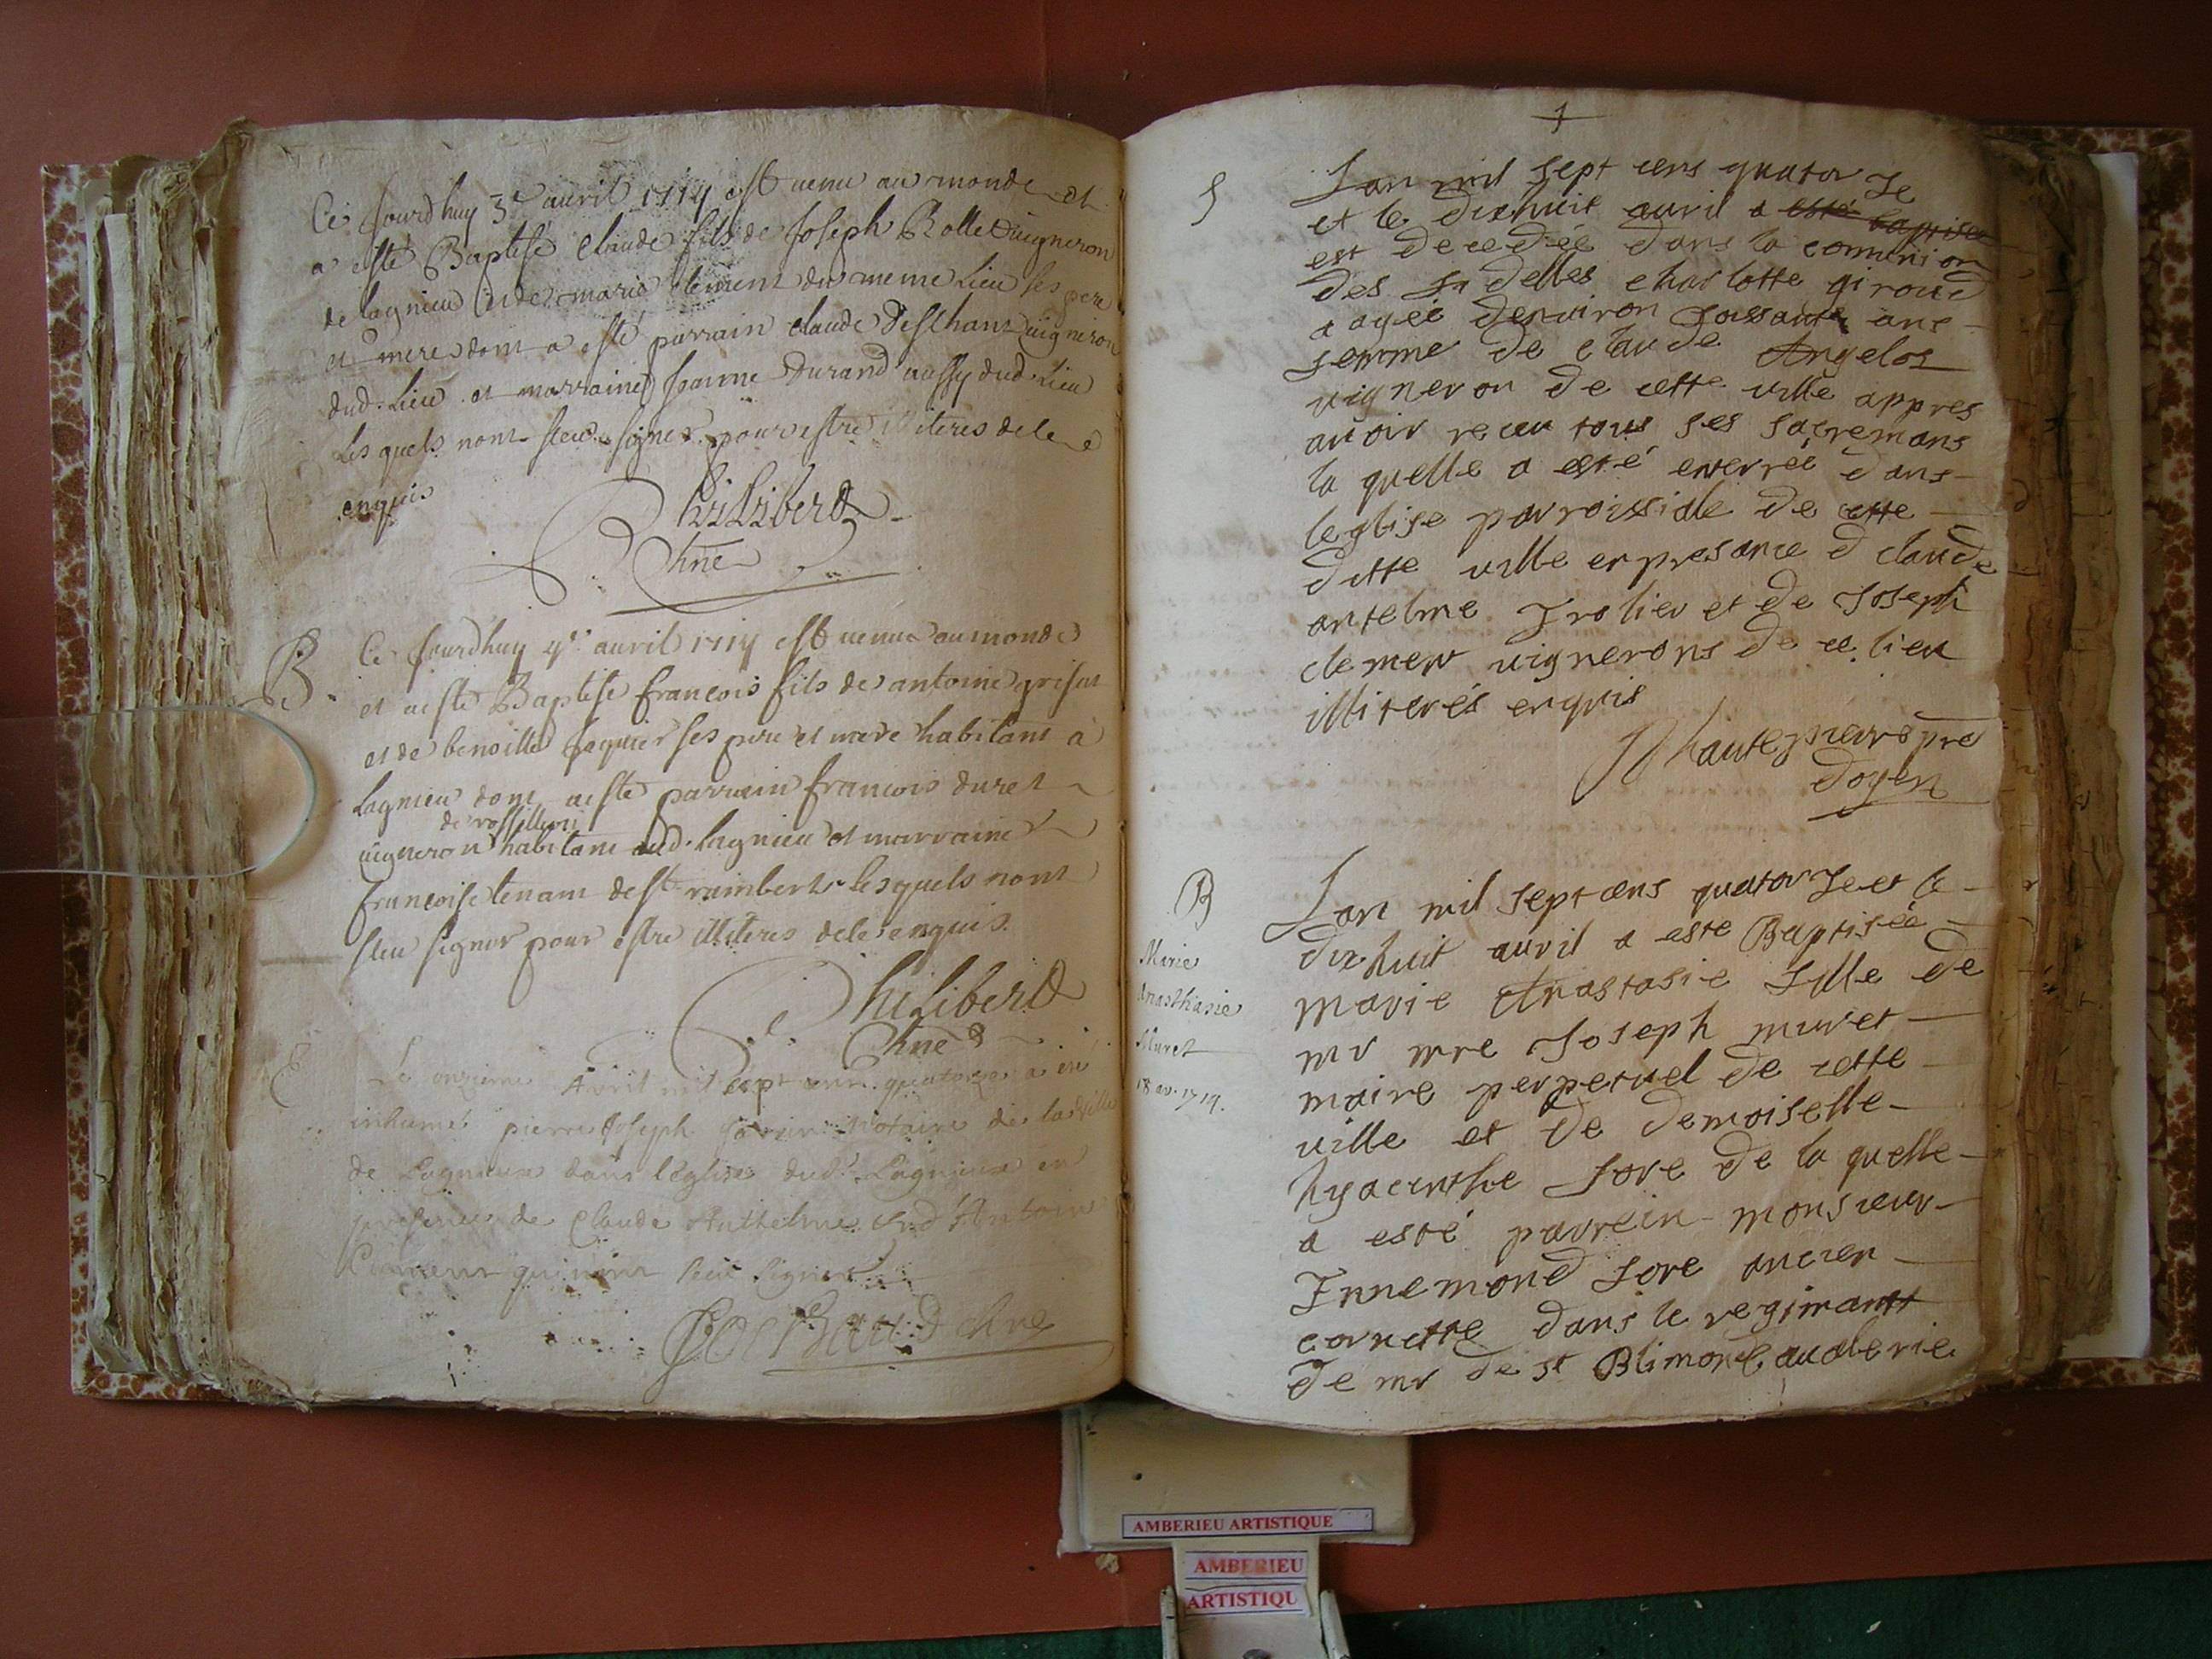 Ce jourdhuy 3e auril 1714 est uenu au monde et
a esté Baptisé Claude fils de Joseph Rollet uigneron
de lagnieu et de marie clement du meme Lieu ses pere
et mere dont a esté parrain claude deschant uigneron
dud. Lieu et marraine Jeanne Durand aussy dud. Lieu
Les quels nont sceu signer pour estre illiteres de ce
enquis
Philibert
Chne
B.
Ce jourdhuy 4e auril 1714 est uenu au monde
et a esté Baptisé francois fils de antoine
et de benoitte Jaquier ses pere et mere habitant à
Lagnieu dont a esté parrain francois duret
de rossillion
uigneron habitant aud. lagnieu et marraine
francoise tenant de st rambert lesquels nont
sceu signer pour estre illiteres de ce enquis.
Philibert
Chne
Le onzieme Avril mil sept cent quatorze a été
inhumé pierre Joseph notaire de la ville
de Lagnieux dans l'église dud. Lagnieux en
presence de Claude Anthelme et d'Antoine
qui nont sceu signer
chne
1
S
Lan mil sept cens quator ze
et le dixhuit auril a esté baptisee
est decedée dans la comunion
des fidelles charlotte giroud
a agée denuiron soissante ans
femme de claude Angelos
uigneron de cette uille appres
auoir receu tous ses sacremans
la quelle a esté enterrée dans
leglise parroissialle de cette
ditte uille en presance d claude
antelme Trolier et de Joseph
clement uignerons de ce lieu
illiterés enquis
hautepierre pre
doyen
B
Marie
Anasthasie
Muret
18 av. 1714.
Lan mil sept cens quator ze et le
dixhuit auril a esté Baptisée
marie Anastasie fille de
mr mre Joseph muret
maire perpetuel de cette
uille et de demoiselle
hyacinthe fore de la quelle
a esté parrein monsieur
Innemond fore ancien
cornette dans le regimantt
de mr de st Blimond caualerie
AMBERIEU ARTISTIQUE
AMBERIEU
ARTISTIQU